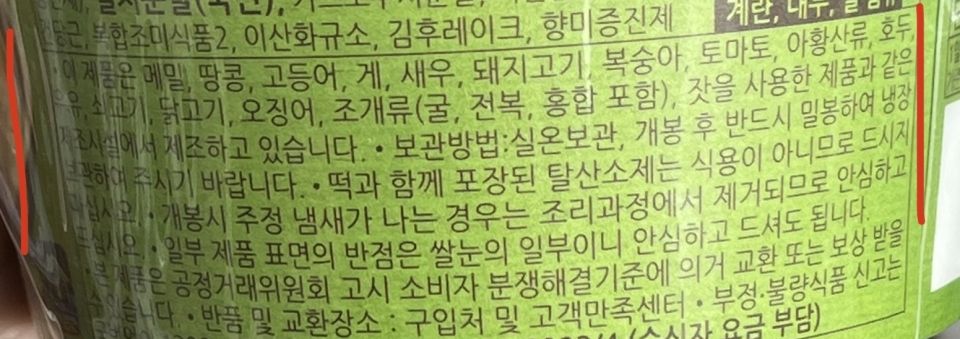 계란, 대두, 밀
당근, 복합조미식품2, 이산화규소, 김후레이크, 향미증진제
• 이 제품은 메밀, 땅콩, 고등어, 게, 새우, 돼지고기, 복숭아, 토마토, 아황산류, 호두,
우유, 쇠고기, 닭고기, 오징어, 조개류(굴, 전복, 홍합 포함), 잣을 사용한 제품과 같은
제조시설에서 제조하고 있습니다. • 보관방법:실온보관, 개봉 후 반드시 밀봉하여 냉장
보관하여 주시기 바랍니다. • 떡과 함께 포장된 탈산소제는 식용이 아니므로 드시지
마십시오. • 개봉시 주정 냄새가 나는 경우는 조리과정에서 제거되므로 안심하고
드십시오. • 일부 제품 표면의 반점은 쌀눈의 일부이니 안심하고 드셔도 됩니다.
• 본 제품은 공정거래위원회 고시 소비자 분쟁해결기준에 의거 교환 또는 보상 받을
수 있습니다. • 반품 및 교환장소 : 구입처 및 고객만족센터 • 부정·불량식품 신고는
(수신자 요금 부담)